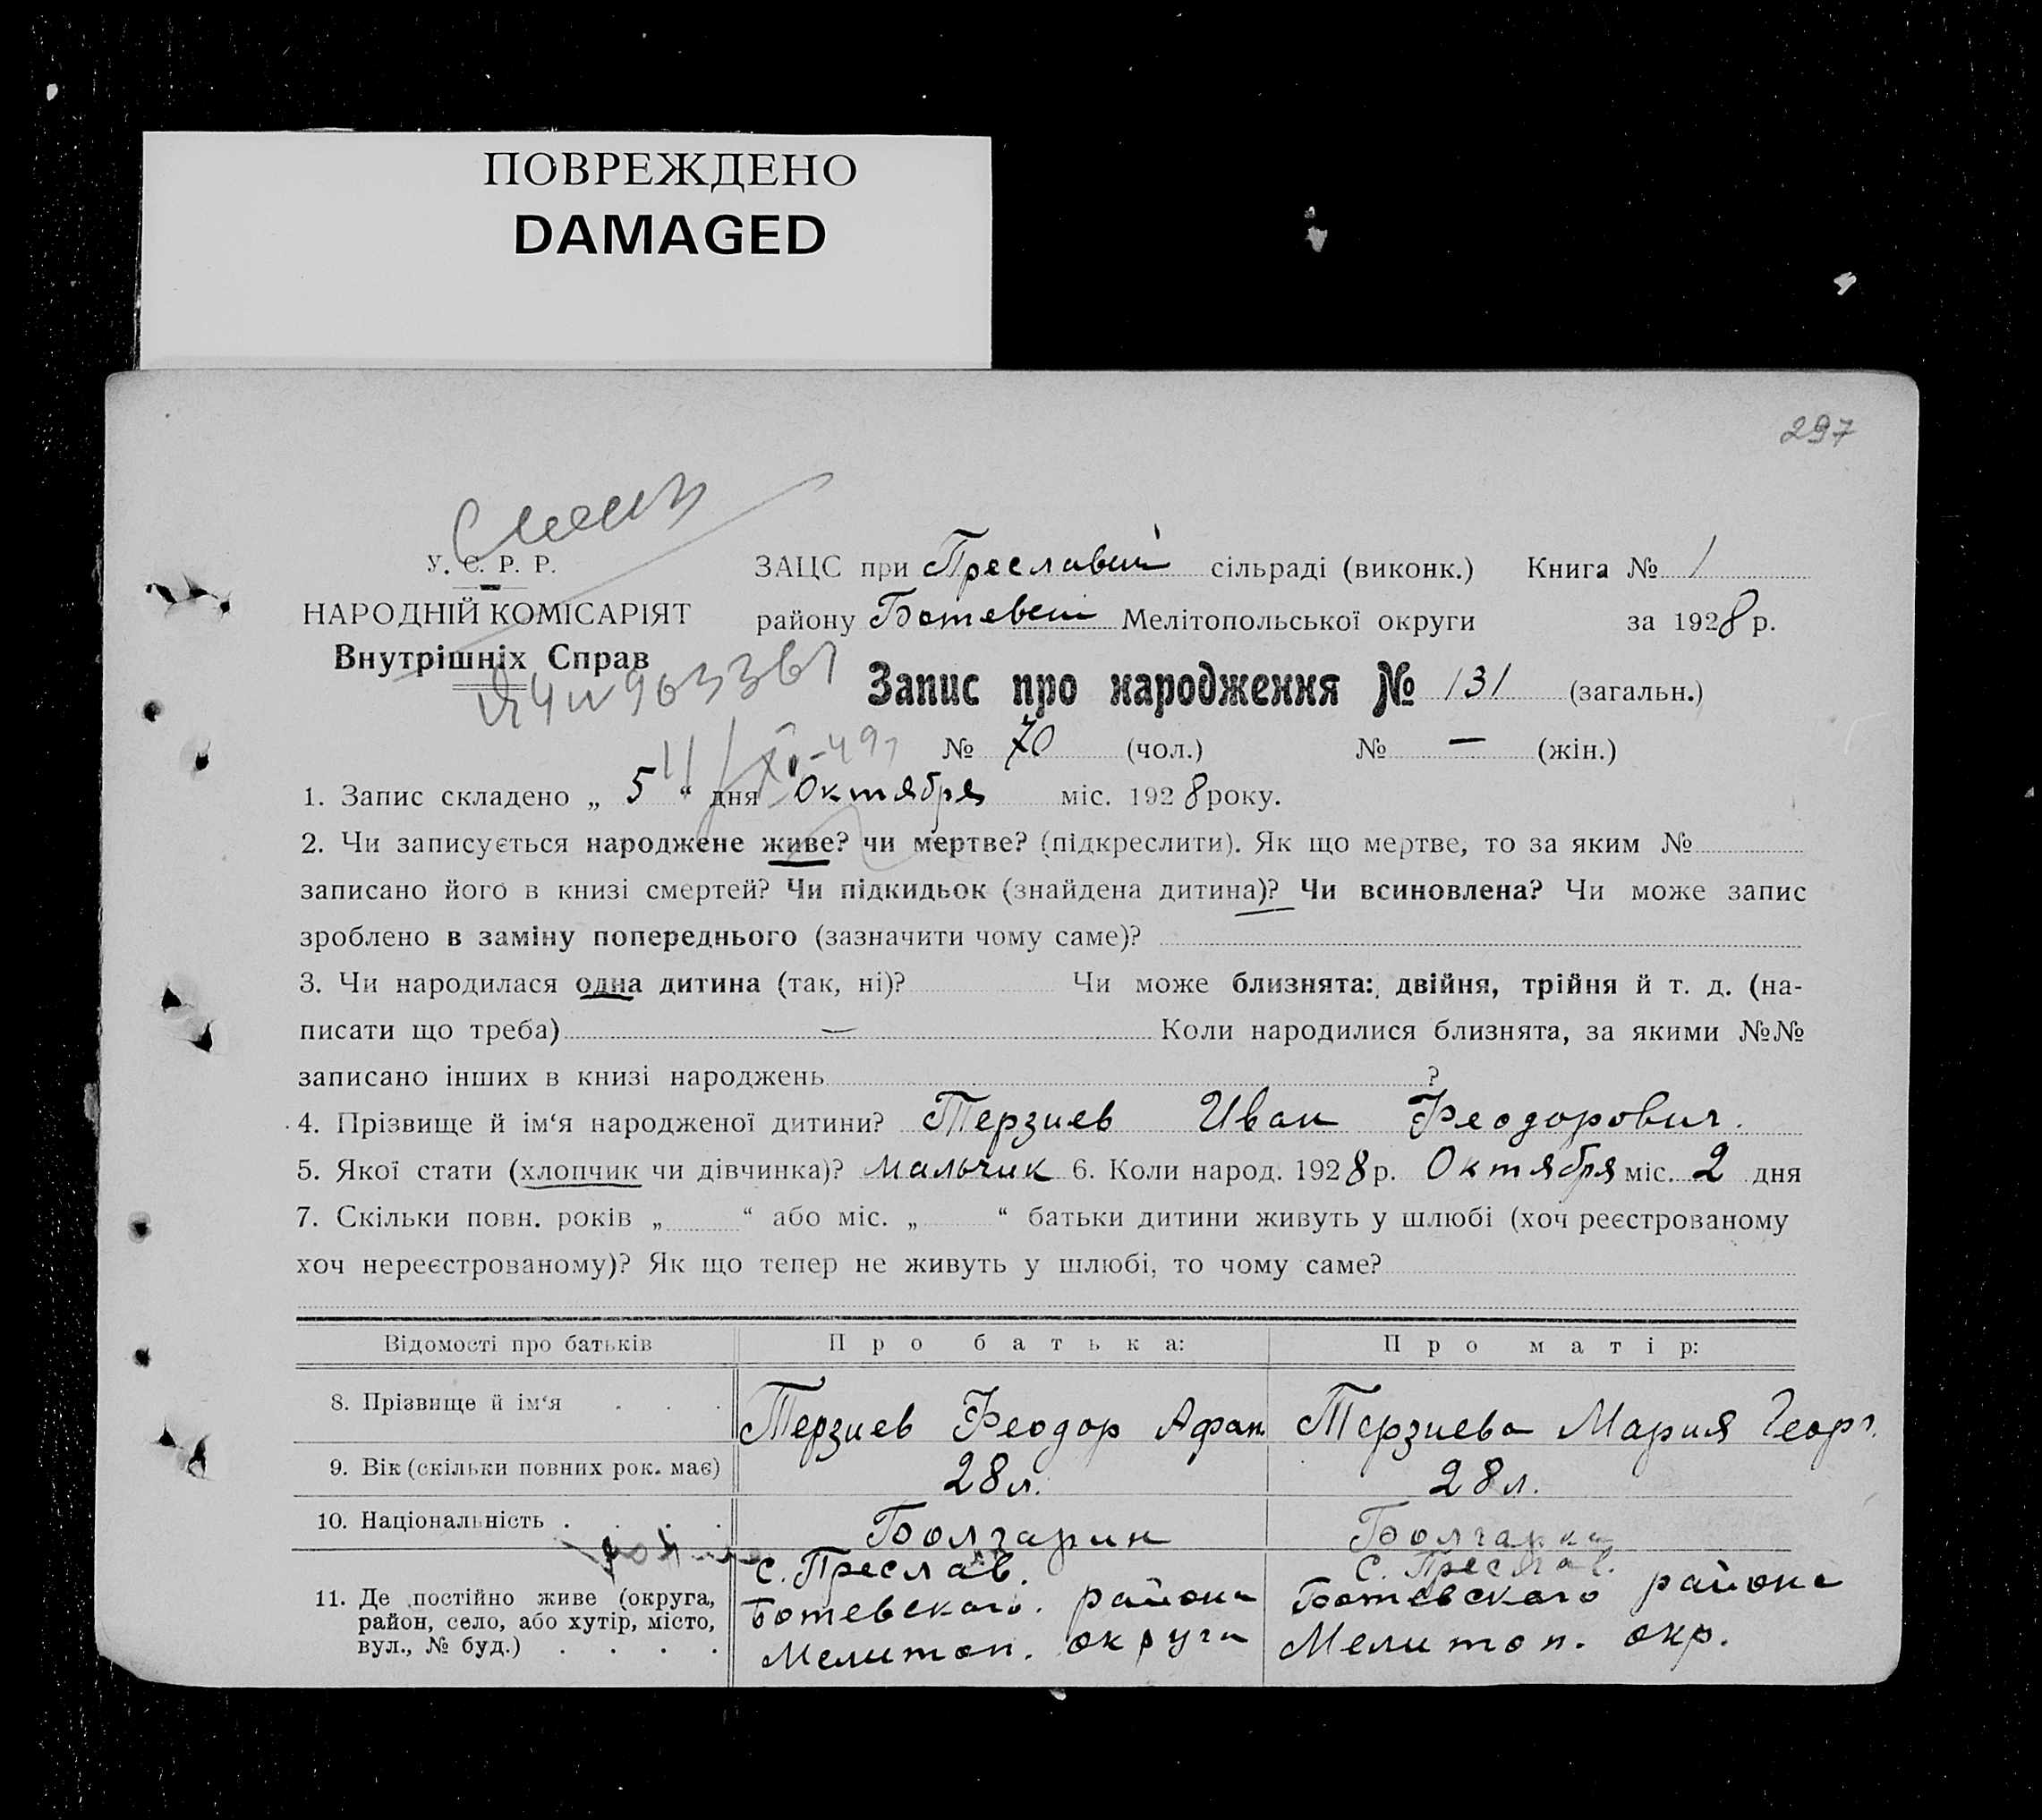 ПОВРЕЖДЕНО
DAMAGED
297
У. С. Р. Р.
НАРОДНІЙ КОМІСАРІЯТ
Внутрішніх Справ
ЗАЦС при Преславській сільраді (виконк.) Книга № 1
району Ботевськ Мелітопольської округи за 1928 р.
Запис про народження № 131 (загальн.)
№ 70 (чол.) № — (жін.)
1. Запис складено „ 5 “ дня Октября міс. 1928 року.
2. Чи записується народжене живе? чи мертве? (підкреслити). Як що мертве, то за яким №
записано його в книзі смертей? Чи підкидьок (знайдена дитина)? Чи всиновлена? Чи може запис
зроблено в заміну попереднього (зазначити чому саме)?
3. Чи народилася одна дитина (так, ні)? Чи може близнята: двійня, трійня й т. д. (на-
писати що треба) — Коли народилися близнята, за якими №№
записано інших в книзі народжень ?
4. Прізвище й ім‘я народженої дитини? Терзиев Иван Феодорович.
5. Якої стати (хлопчик чи дівчинка)? мальчик 6. Коли народ. 1928 р. Октября міс. 2 дня
7. Скільки повн. років „ “ або міс. „ “ батьки дитини живуть у шлюбі (хоч реєстрованому
хоч нереєстрованому)? Як що тепер не живуть у шлюбі, то чому саме?
Відомості про батьків Про батька: Про матір:
8. Прізвище й ім‘я . . . Терзиев Феодор Афан. Терзиева Мария Георг.
9. Вік (скільки повних рок. має) 28 л. 28 л.
10. Національність . . . . Болгарин Болгарка
11. Де постійно живе (округа,
район, село, або хутір, місто,
вул., № буд.) . . . .
с. Преслав.
Ботевского. района
Мелитоп. округа
с. Преслав.
Ботевского района
Мелитоп. окр.